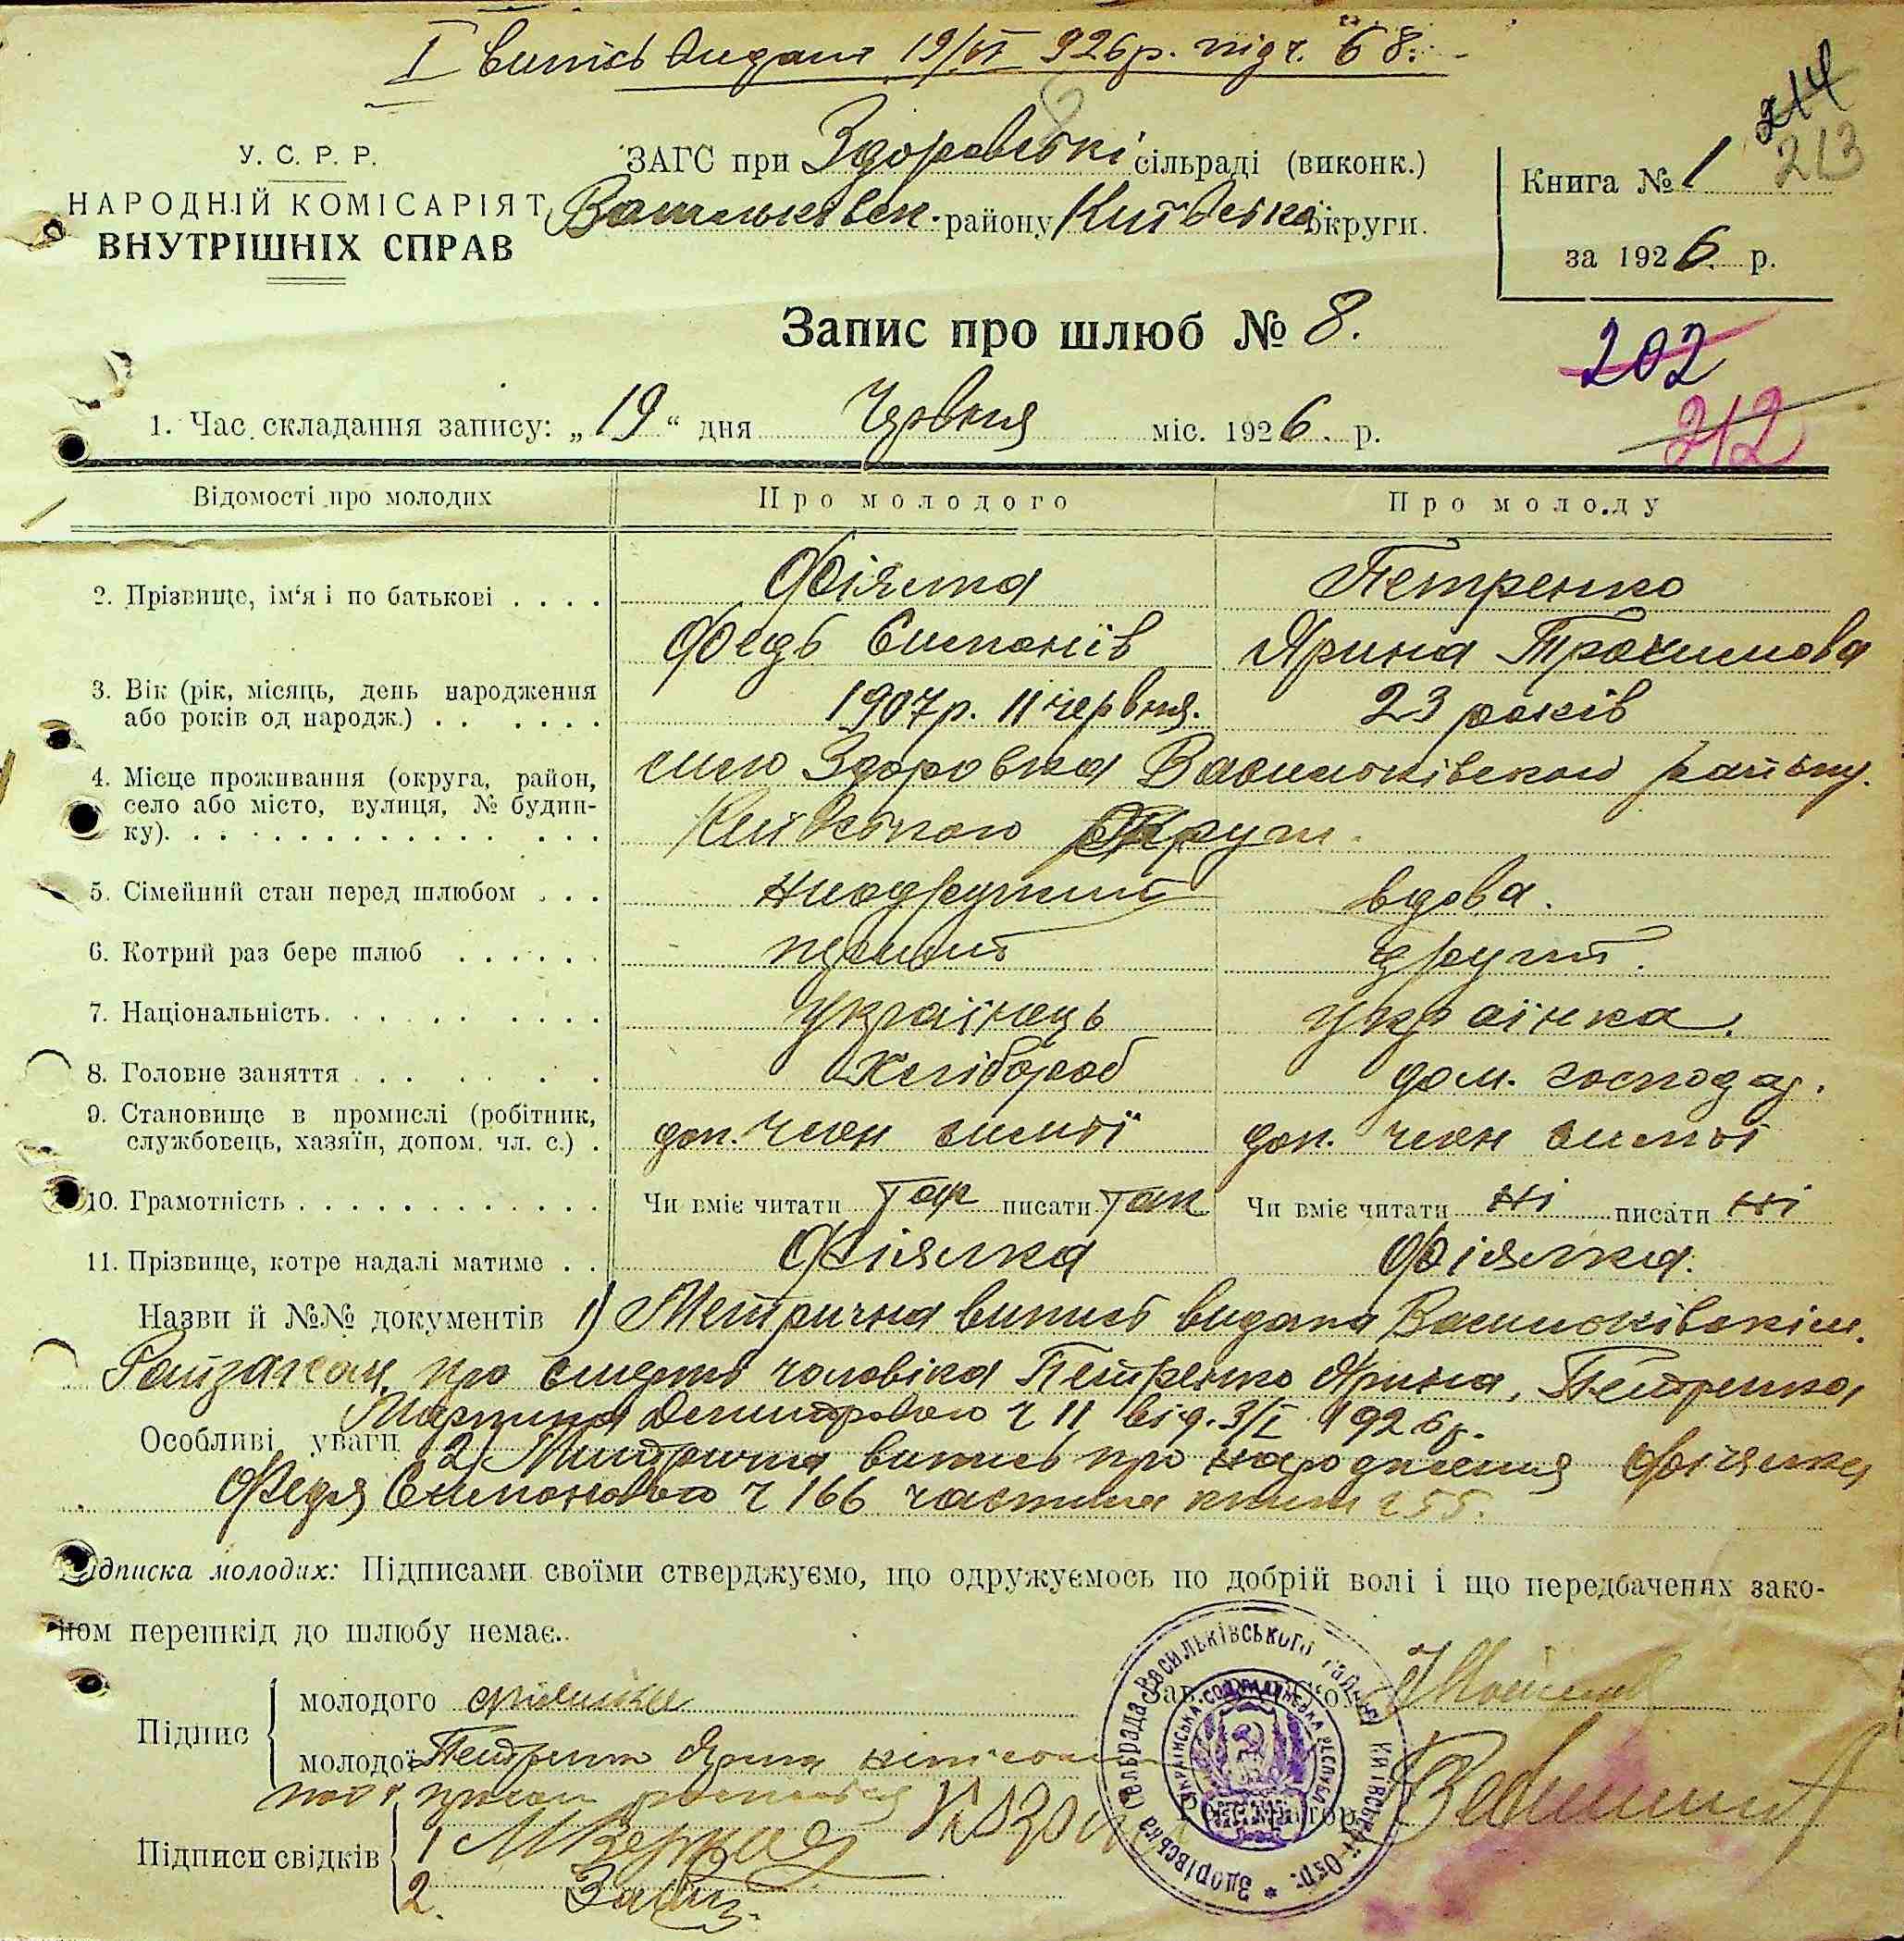 І Витісь видана 19/VI 926р. під ч. 68.
214
213
У. С. Р. Р.
НАРОДНІЙ КОМІСАРІЯТ
ВНУТРІШНІХ СПРАВ
ЗАГС при Здоровській сільраді (виконк.)
Васильківськ. району Київської округи.
Книга № 1
за 1926. р.
Запис про шлюб № 8.
202
212
1. Час складання запису: „19“ дня Червня міс. 1926. р.
Відомості про молодих Про молодого Про молоду
2. Прізвище, ім'я і по батькові . . . . Фіялка Петренко
Федь Симонів Ярина Трохимова
3. Вік (рік, місяць, день народження
або років од народж.) . . . . . . 1907р. 11 червня. 23 років
4. Місце проживання (округа, район,
село або місто, вулиця, № будин-
ку). село Здоровка Васильківського району.
Київської округи.
5. Сімейний стан перед шлюбом . . . вдова.
6. Котрий раз бере шлюб . . . . . . перший другий.
7. Національність. . . . . . . . . українець українка.
8. Головне заняття . . . . . . . Хлібороб дом. господар.
9. Становище в промислі (робітник,
службовець, хазяїн, допом. чл. с.) . доп. член сім'ї доп. член сім'ї
10. Грамотність . . . . . . . . . . . . . Чи вміє читати так писати так Чи вміє читати ні писати ні
11. Прізвище, котре надалі матиме . . Фіялка Фіялка.
Назви й №№ документів 1) Метрична випись видана Васильківським.
Райзагсом, про смерть чоловіка Петренко Ярина, Петренка,
Мартина ч 11 від. 3/I 1926р.
Особливі уваги 2) Метрична випись про народження Фіялка
Федя Симонового ч 166 частина книги 255.
Підписка молодих: Підписами своїми стверджуємо, що одружуємось по добрій волі і що передбачених зако-
ном перешкід до шлюбу немає.
Підпис молодого Фіялка
молодої Петренко Ярина
Зав. 
Реєстратор
Підписи свідків 1
2.
Здорівська Сільрада Васильківського району Київської Окр.
УКРАЇНСЬКА СОЦ. РАДЯНСЬКА РЕСПУБЛ.